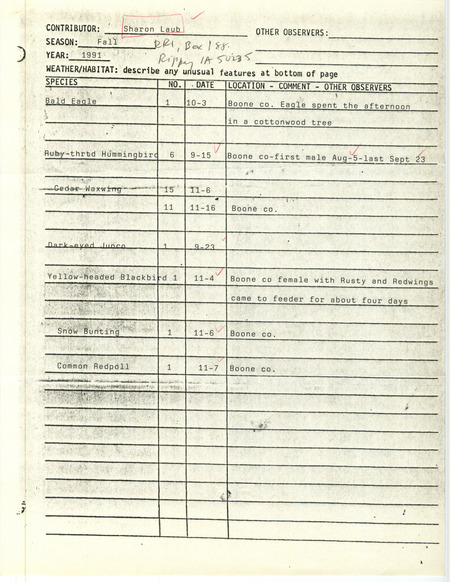 CONTRIBUTOR: Sharon Laub OTHER OBSERVERS:
SEASON: Fall RR1, Box 188
YEAR: 1991 Rippey IA 50235
WEATHER/HABITAT: describe any unusual features at bottom of page
SPECIES NO. DATE LOCATION - COMMENT - OTHER OBSERVERS
Bald Eagle 1 10-3 Boone co. Eagle spent the afternoon
in a cottonwood tree
Ruby-thrtd Hummingbird 6 9-15 Boone co-first male Aug-5-last Sept 23
Cedar Waxwing 15 11-6
11 11-16 Boone co.
Dark-eyed Junco 1 9-23
Yellow-headed Blackbird 1 11-4 Boone co female with Rusty and Redwings
came to feeder for about four days
Snow Bunting 1 11-6 Boone co.
Common Redpoll 1 11-7 Boone co.